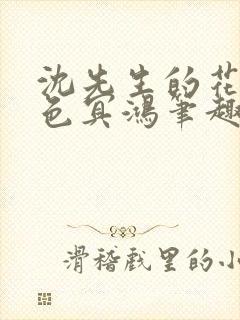 沈先生的花
色冥鸿笔趣
滑稽戏里的小